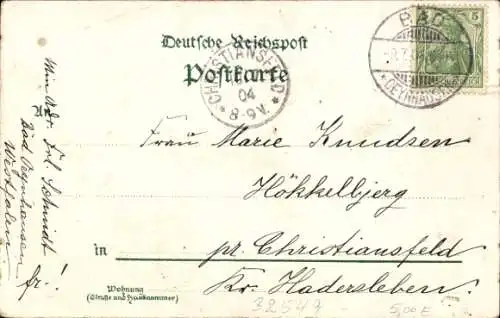 Deutsche Reichspost
Postkarte
BAD
5
OEYNHAUSEN
CHRISTIANSFELD
04
8-9V.
Frau Marie Knudsen
Hökkelbjerg
in pr. Christiansfeld
Kr. Hadersleben.
Wohnung
(Straße und Hausnummer)
32547
5,00 E
Adr. Frl. Schmidt
Bad Oeynhausen
Westfalen
fr.!